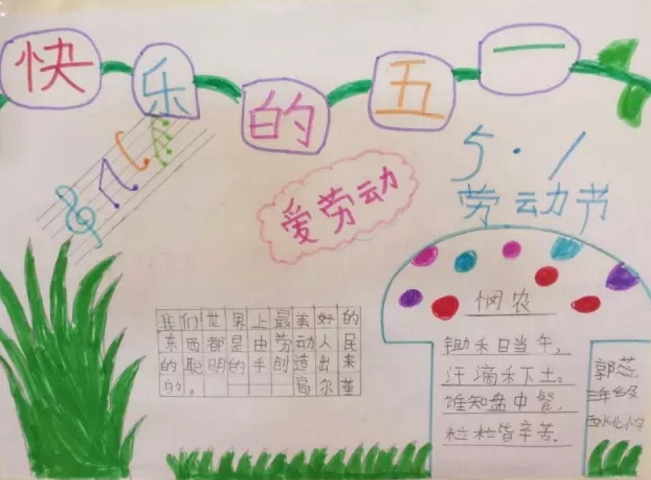 快乐的五一
5·1
劳动节
爱劳动
我们世界上最美好的
东西都是由劳动人民
的聪明的手创造出来
的。高尔基
悯农
锄禾日当午，
汗滴禾下土。
谁知盘中餐，
粒粒皆辛苦。
郭蕊
三年级
小学